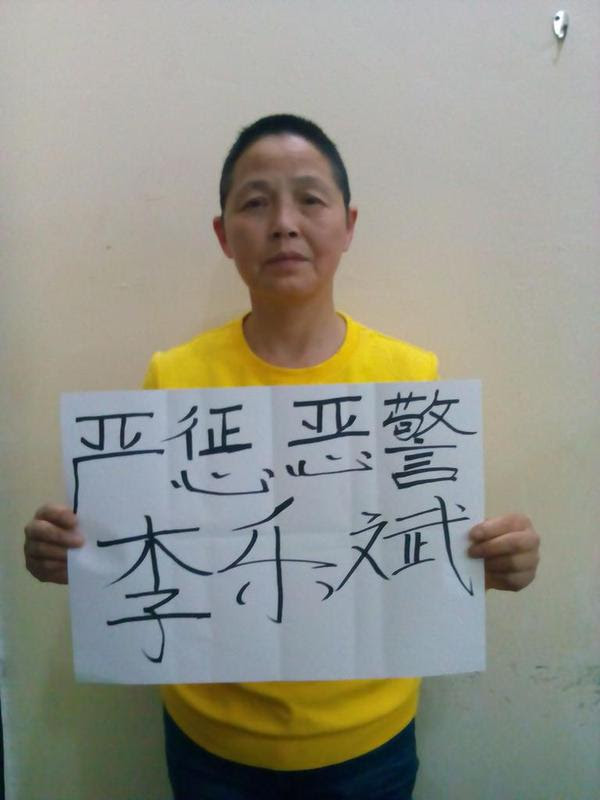 严惩恶警
李乐斌